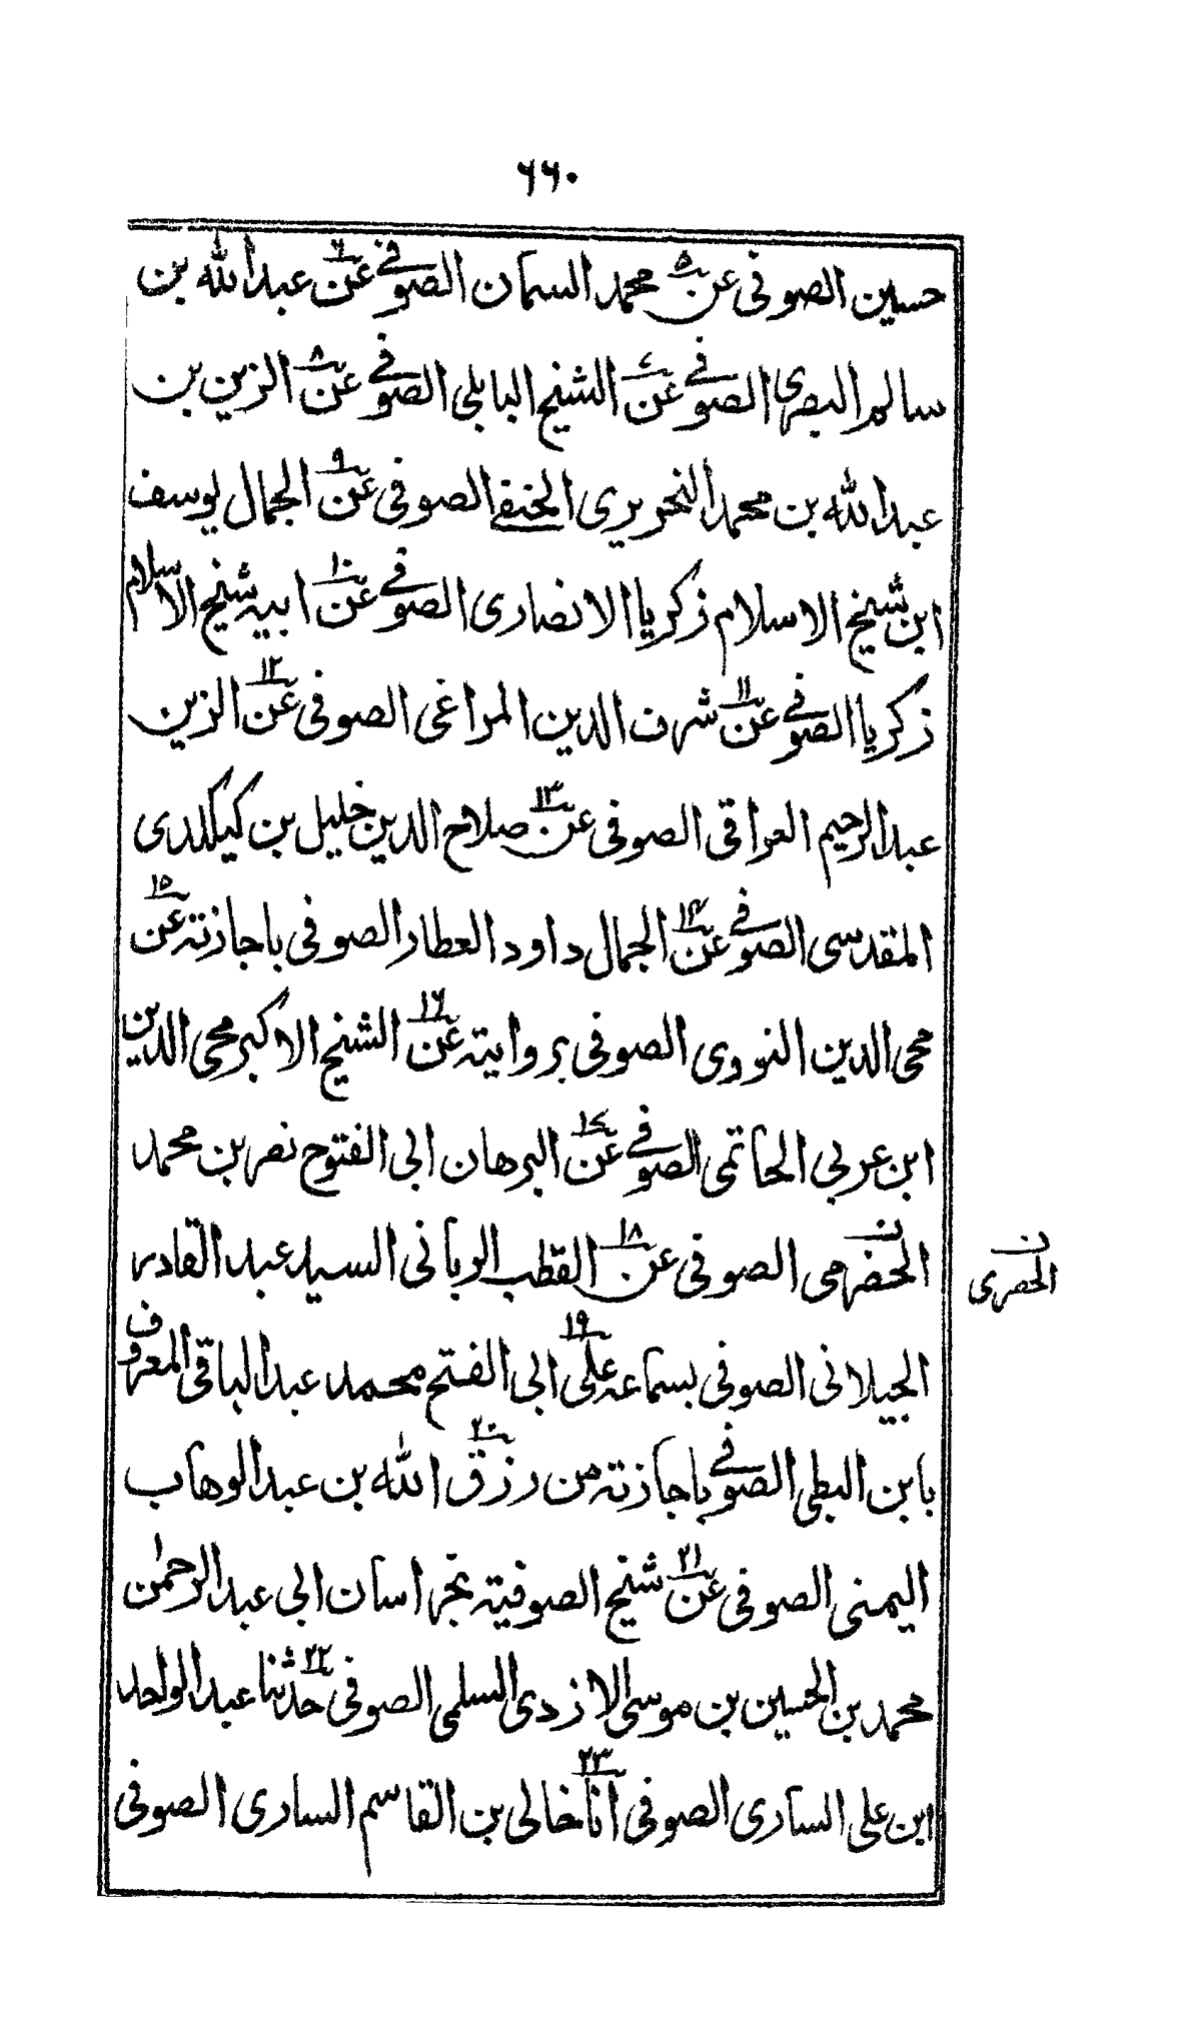 ۶۶۰
حسین الصوفی عن ۵ محمد السمان الصوفی عن ۶ عبد الله بن
سالم البصری الصوفی عن ۷ الشیخ البابلی الصوفی عن ۸ الزین بن
عبد الله بن محمد النحریری الحنفی الصوفی عن ۹ الجمال یوسف
ابن شیخ الاسلام زکریا الانصاری الصوفی عن ۱۰ ابیه شیخ الاسلام
زکریا الصوفی عن ۱۱ شرف الدین المراغی الصوفی عن ۱۲ الزین
عبد الرحیم العراقی الصوفی عن ۱۳ صلاح الدین خلیل بن کیکلدی
المقدسی الصوفی عن ۱۴ الجمال داود العطار الصوفی باجازته عن ۱۵
محی الدین النووی الصوفی بروایته عن ۱۶ الشیخ الاکبر محی الدین
ابن عربی الحاتمی الصوفی عن ۱۷ البرهان ابی الفتوح نصر بن محمد
الحضرمی ن الصوفی عن ۱۸ القطب الربانی السید عبد القادر
ن الحصری
الجیلانی الصوفی بسماعه علی ۱۹ ابی الفتح محمد عبد الباقی المعروف
بابن البطی الصوفی باجازته من ۲۰ رزق الله بن عبد الوهاب
الیمنی الصوفی عن ۲۱ شیخ الصوفیة بخراسان ابی عبد الرحمٰن
محمد بن الحسین بن موسی الازدی السلمی الصوفی ۲۲ حدثنا عبد الواحد
ابن علی الساری الصوفی ۲۳ انا خالی بن القاسم الساری الصوفی